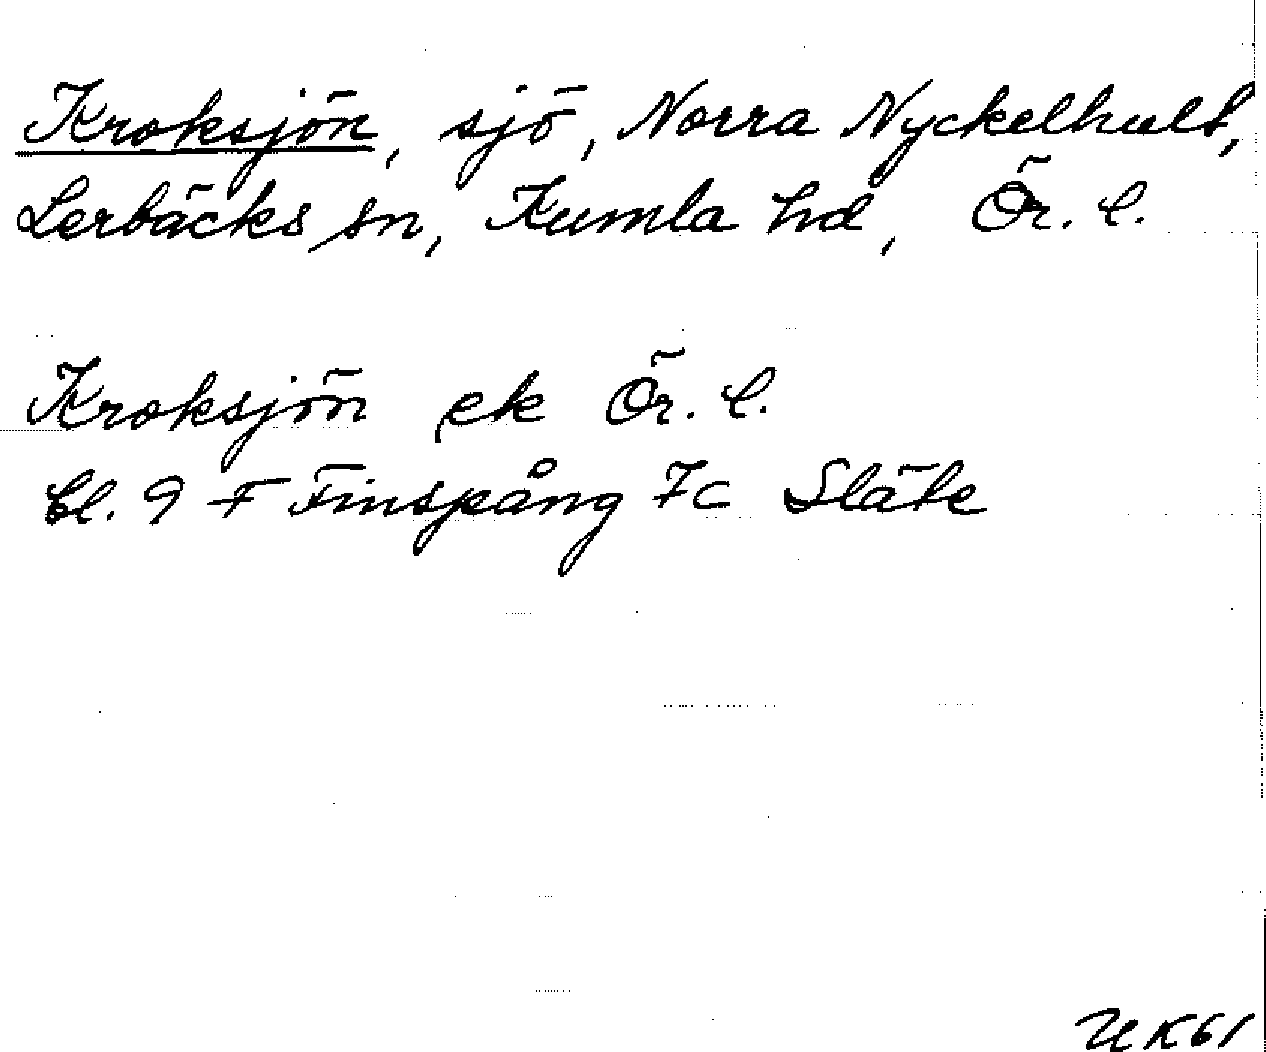 Kroksjön, sjö, Norra Nyckelhult,
Lerbäcks sn, Kumla hd, Ör. l.
Kroksjön ek Ör. l.
bl. 9 F Finspång 7c Släte
UK61